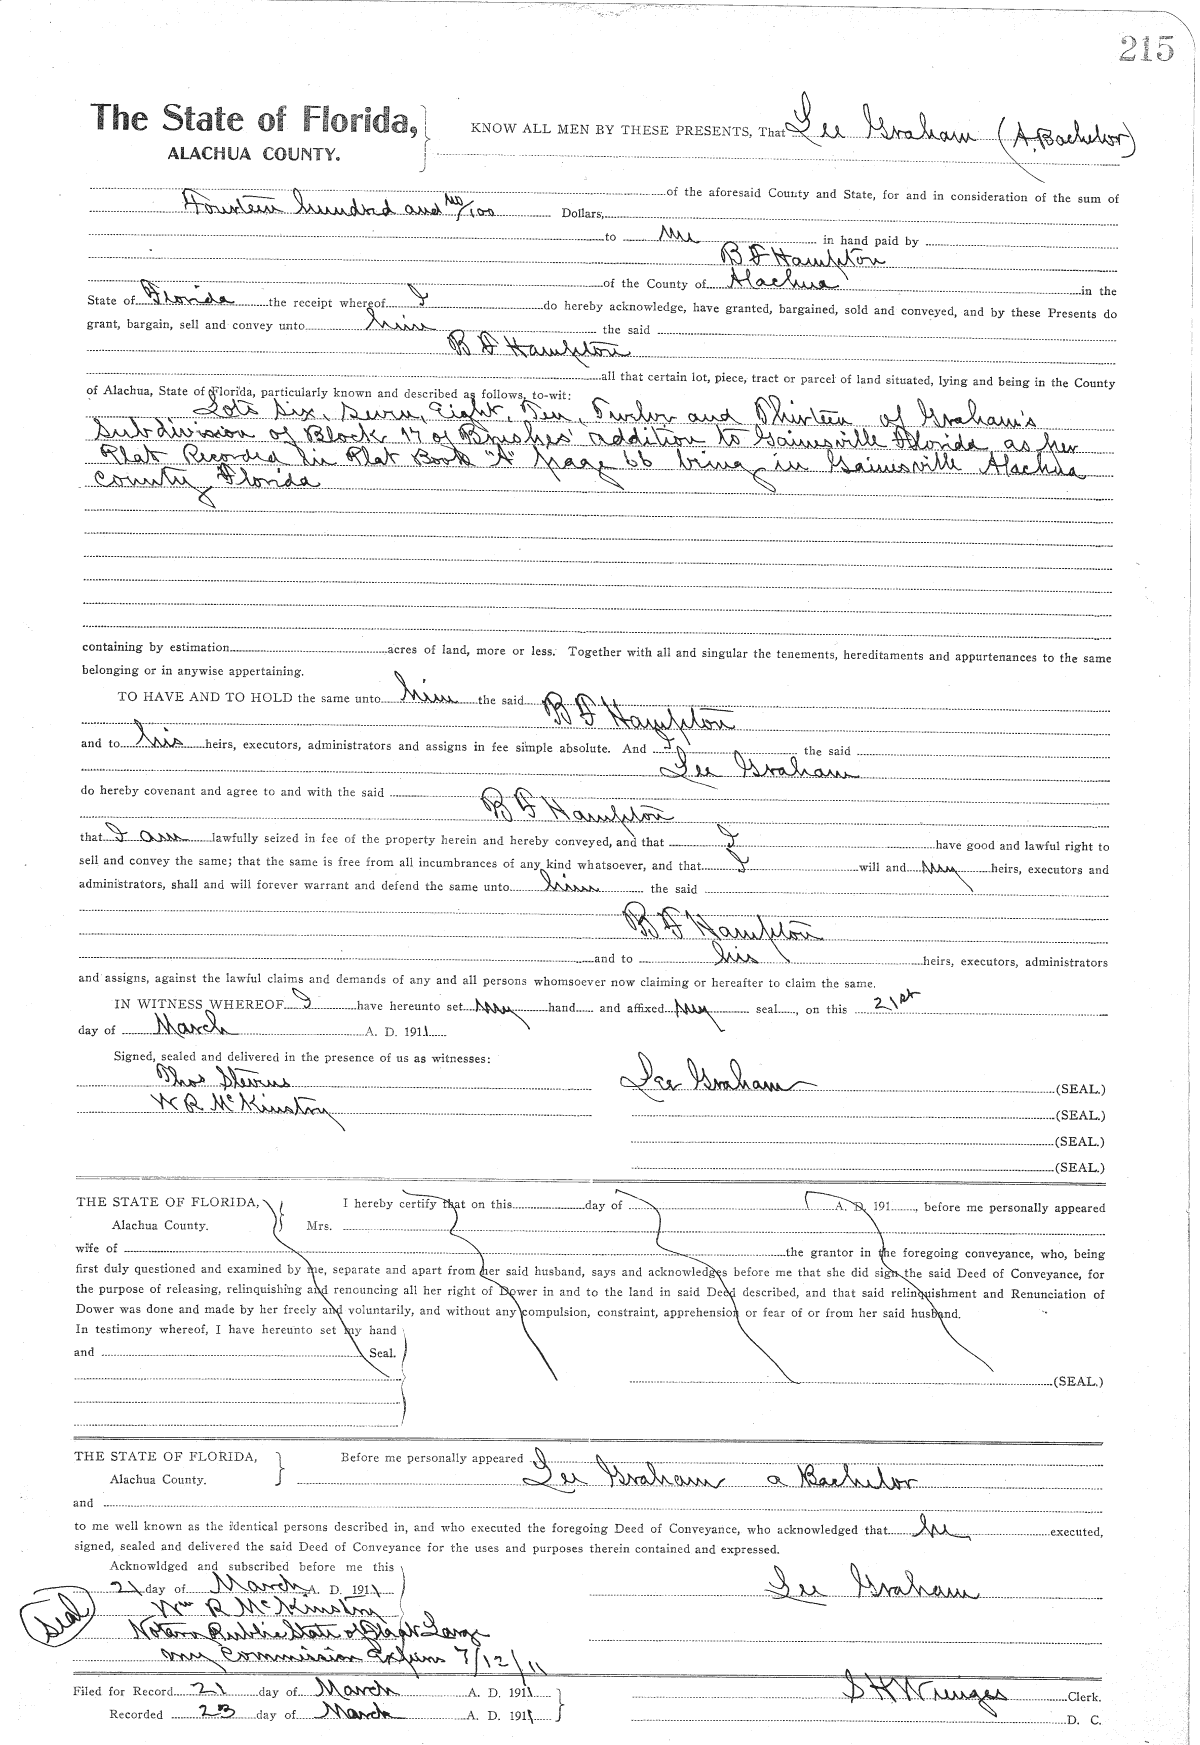 215
The State of Florida, KNOW ALL MEN BY THESE PRESENTS, That Lee Graham (A Bachelor)
ALACHUA COUNTY.
of the aforesaid County and State, for and in consideration of the sum of
Fourteen hundred and no/100 Dollars,
to me in hand paid by
B F Hampton
of the County of Alachua in the
State of Florida the receipt whereof I do hereby acknowledge, have granted, bargained, sold and conveyed, and by these Presents do
grant, bargain, sell and convey unto him the said
B F Hampton
all that certain lot, piece, tract or parcel of land situated, lying and being in the County
of Alachua, State of Florida, particularly known and described as follows, to-wit:
Lots Six, Seven, Eight, Ten, Twelve and Thirteen of Graham's
Subdivision of Block 17 of Brushes' addition to Gainesville Florida as per
Plat Recorded in Plat Book "A" page 66 being in Gainesville Alachua
County Florida
containing by estimation acres of land, more or less. Together with all and singular the tenements, hereditaments and appurtenances to the same
belonging or in anywise appertaining.
TO HAVE AND TO HOLD the same unto him the said
B F Hampton
and to his heirs, executors, administrators and assigns in fee simple absolute. And I the said
Lee Graham
do hereby covenant and agree to and with the said
B F Hampton
that I am lawfully seized in fee of the property herein and hereby conveyed, and that I have good and lawful right to
sell and convey the same; that the same is free from all incumbrances of any kind whatsoever, and that I will and my heirs, executors and
administrators, shall and will forever warrant and defend the same unto him the said
B F Hampton
and to his heirs, executors, administrators
and assigns, against the lawful claims and demands of any and all persons whomsoever now claiming or hereafter to claim the same.
IN WITNESS WHEREOF I have hereunto set my hand and affixed my seal, on this 21st
day of March A. D. 1911
Signed, sealed and delivered in the presence of us as witnesses:
Thos Stevens Lee Graham (SEAL.)
W R McKinstry (SEAL.)
(SEAL.)
(SEAL.)
THE STATE OF FLORIDA, I hereby certify that on this day of A. D. 191, before me personally appeared
Alachua County. Mrs.
wife of the grantor in the foregoing conveyance, who, being
first duly questioned and examined by me, separate and apart from her said husband, says and acknowledges before me that she did sign the said Deed of Conveyance, for
the purpose of releasing, relinquishing and renouncing all her right of Dower in and to the land in said Deed described, and that said relinquishment and Renunciation of
Dower was done and made by her freely and voluntarily, and without any compulsion, constraint, apprehension or fear of or from her said husband.
In testimony whereof, I have hereunto set my hand
and Seal.
(SEAL.)
THE STATE OF FLORIDA, Before me personally appeared
Alachua County. Lee Graham a Bachelor
and
to me well known as the identical persons described in, and who executed the foregoing Deed of Conveyance, who acknowledged that he executed,
signed, sealed and delivered the said Deed of Conveyance for the uses and purposes therein contained and expressed.
Acknowldged and subscribed before me this
21 day of March A. D. 1911 Lee Graham
Wm R McKinstry
Seal Notary Public State of Fla at Large
My Commission Expires 7/12/11
Filed for Record 21 day of March A. D. 1911 S H Wienges Clerk.
Recorded 23 day of March A. D. 1911 D. C.